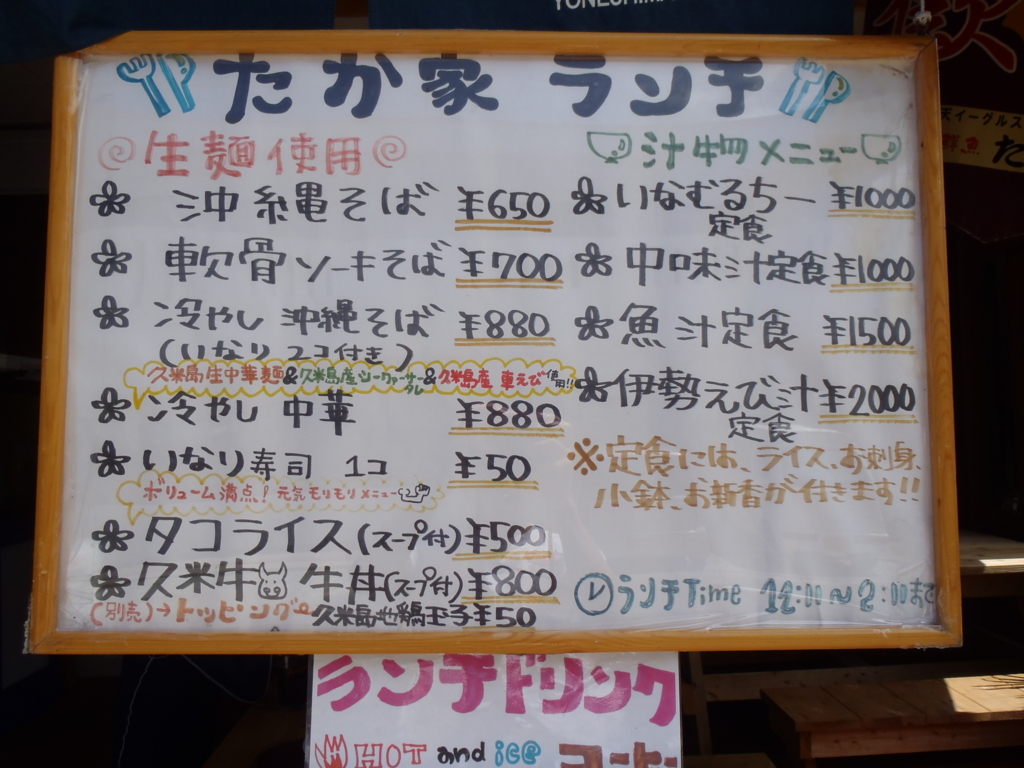 たか家 ランチ
生麺使用
沖縄そば ¥650
軟骨ソーキそば ¥700
冷やし 沖縄そば ¥880
(いなり2コ付き)
久米島生中華麺&久米島産シークヮーサー&久米島産 車えび使用!!
冷やし 中華 ¥880
いなり寿司 1コ ¥50
ボリューム満点! 元気モリモリメニュー
タコライス(スープ付) ¥500
久米牛 牛丼(スープ付) ¥800
(別売)→トッピング 久米島地鶏玉子¥50
汁物メニュー
いなむるちー ¥1000
定食
中味汁定食 ¥1000
魚汁定食 ¥1500
伊勢えび汁 ¥2000
定食
※定食には、ライス、お刺身、
小鉢、お新香が付きます!!
ランチTime 12:00〜2:00まで
ランチドリンク
HOT and ice コーヒー
天イーグルス